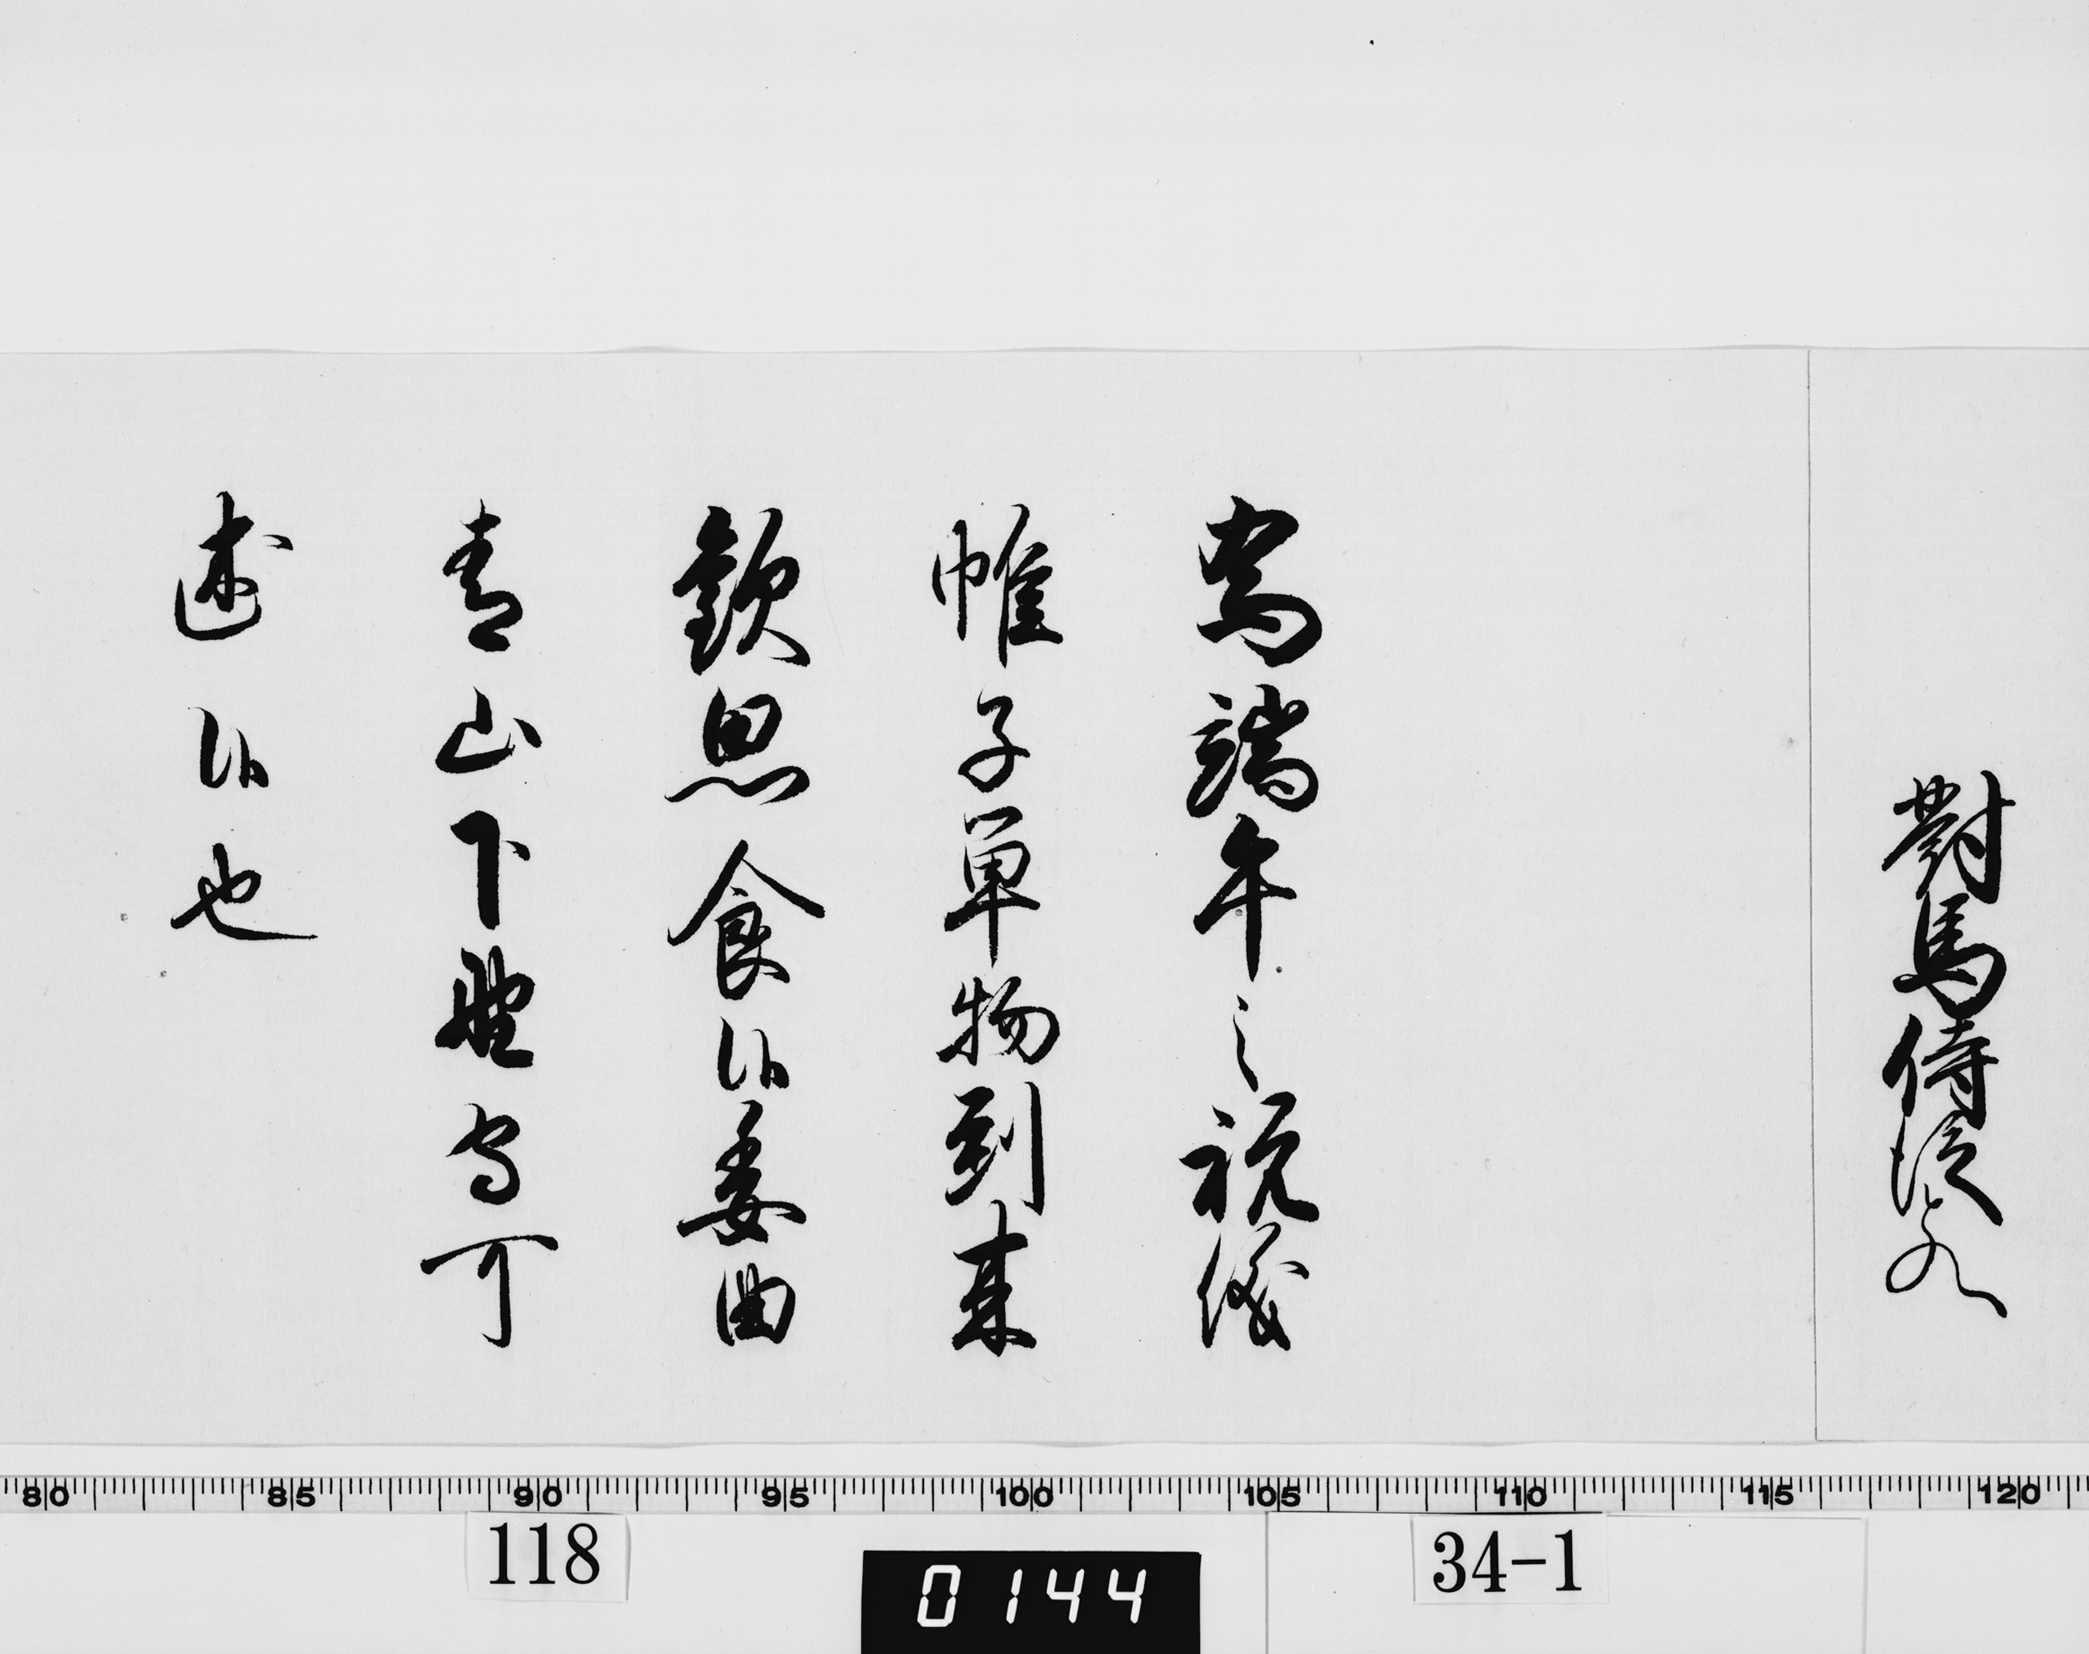 對馬侍従とのへ
為端午之祝儀
帷子単物到来
歓思食候委曲
青山下野守可
述候也
80 85 90 95 100 105 110 115 120
118
34-1
0144